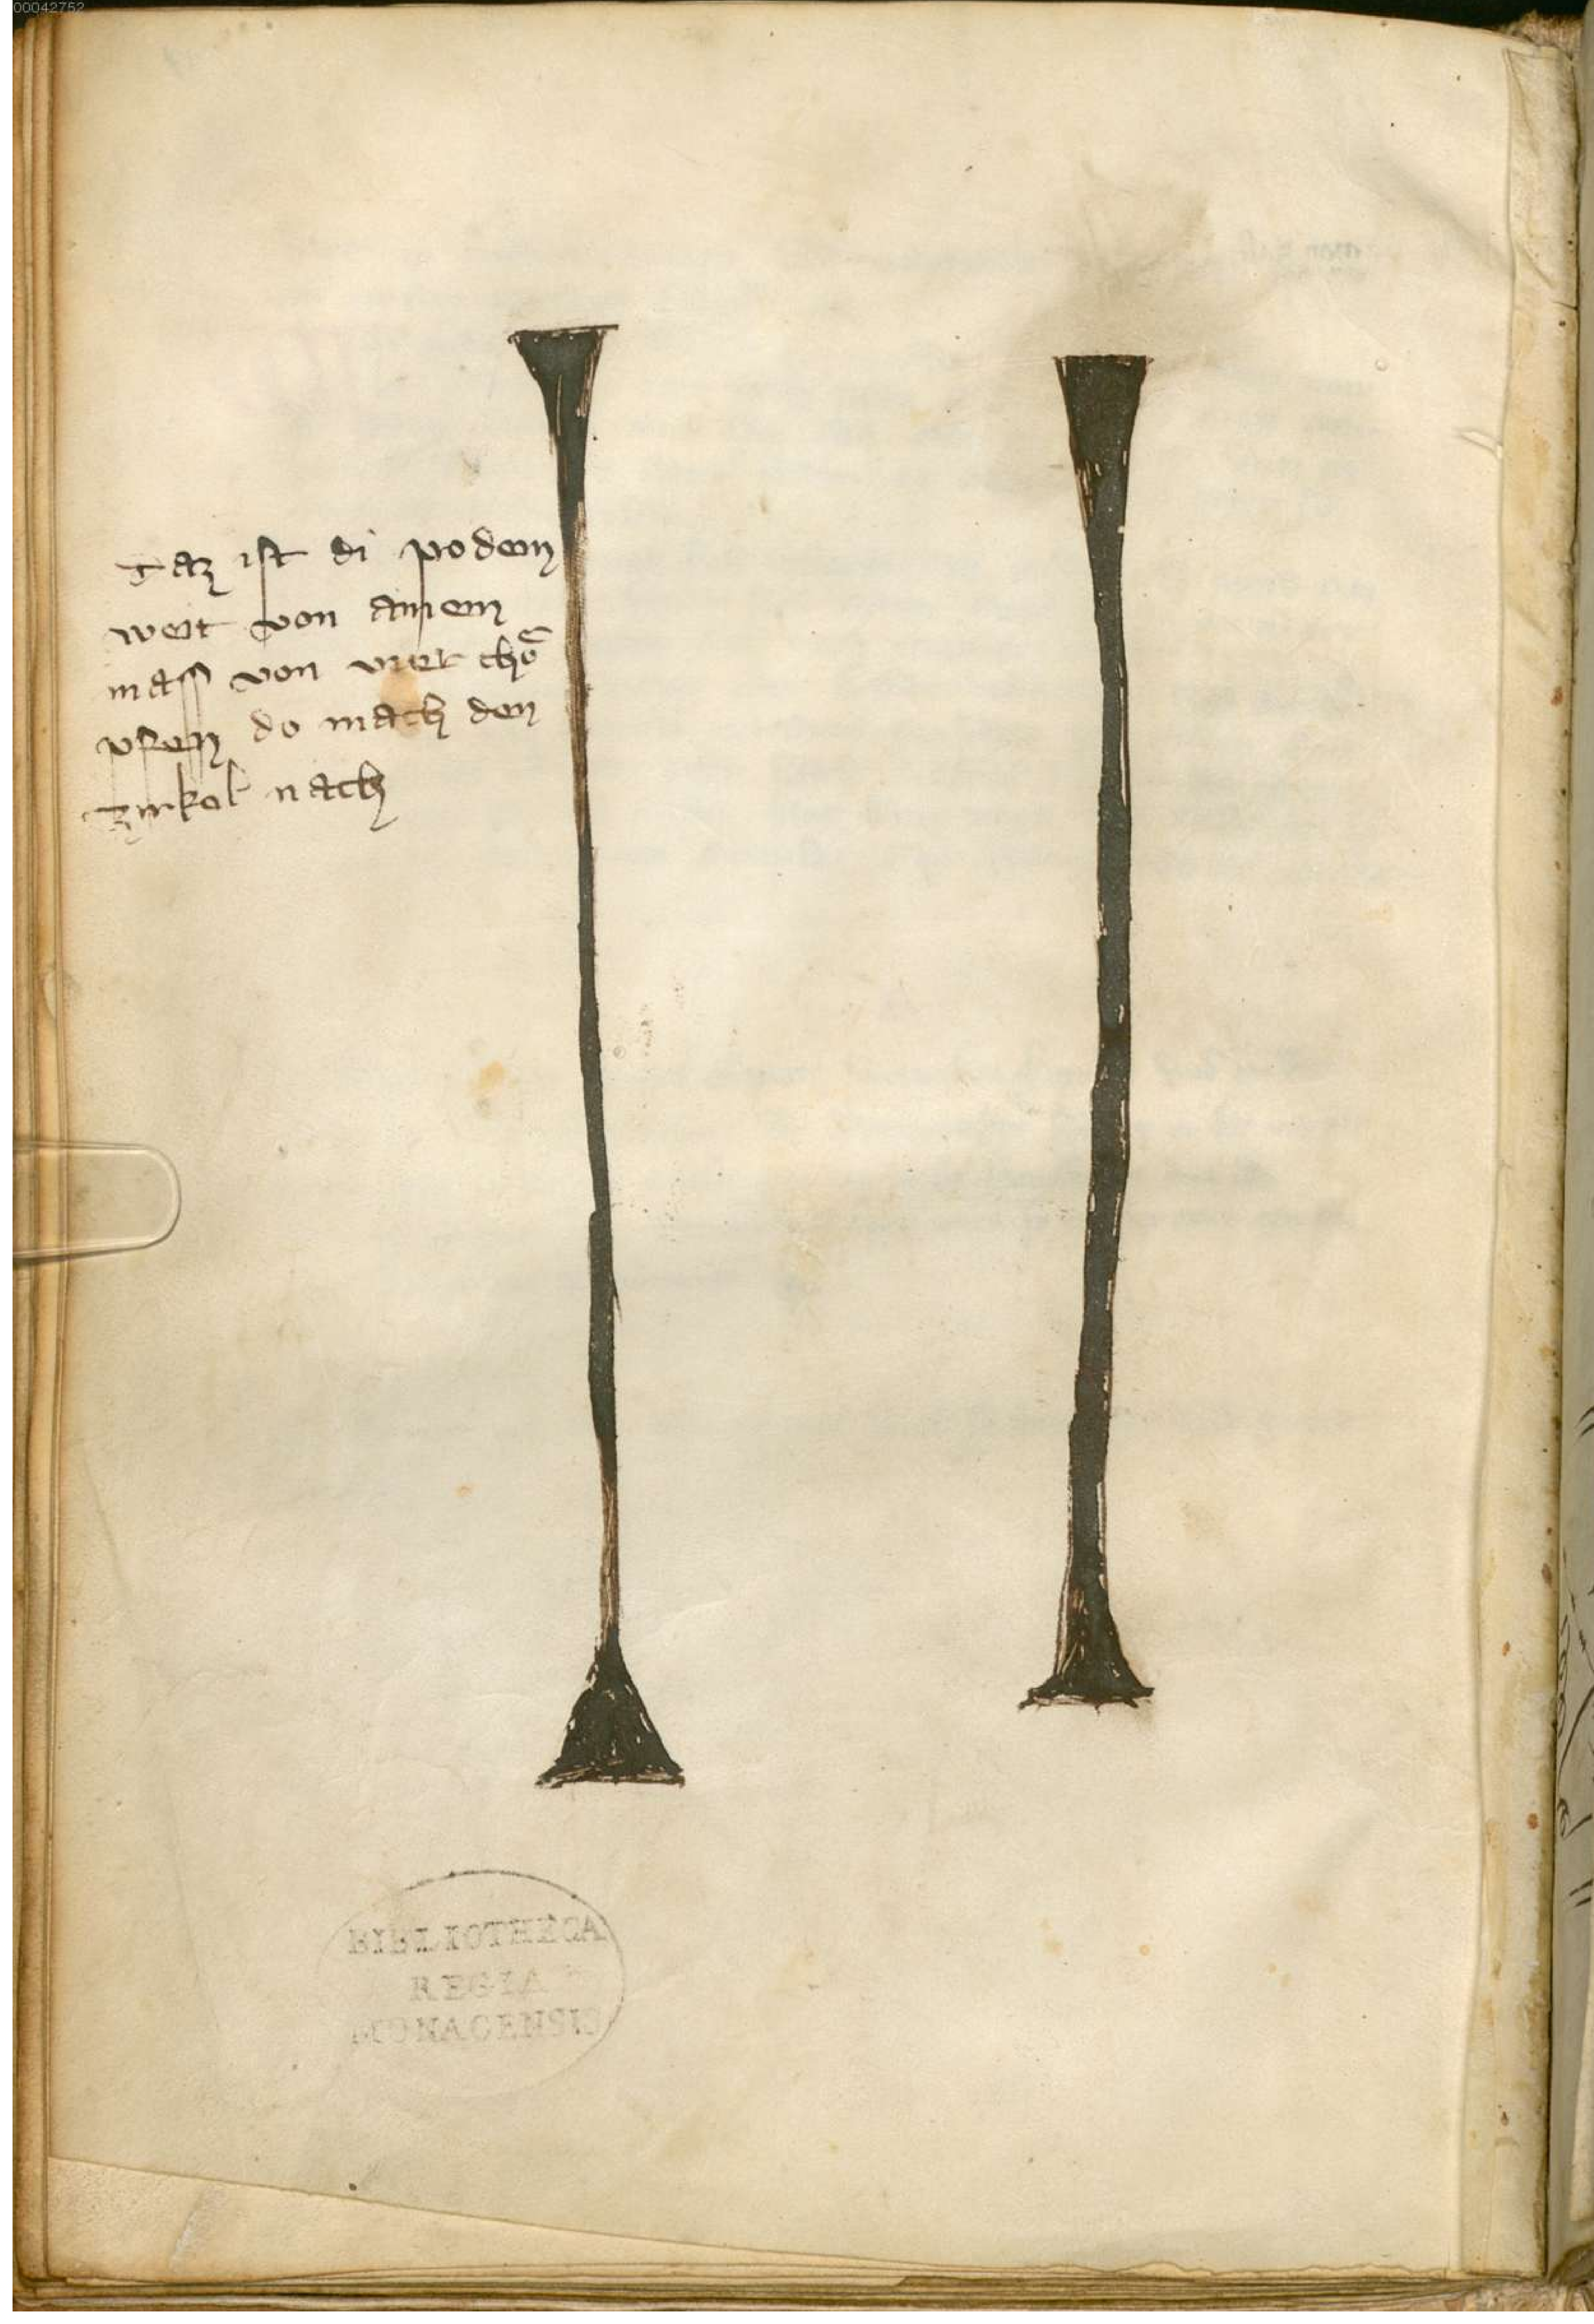 00042752
Daz ist di podem
weit von ainem
mass von vier chö
pfen do mach den
zirkel nach
BIBLIOTHECA
REGIA
MONACENSIS